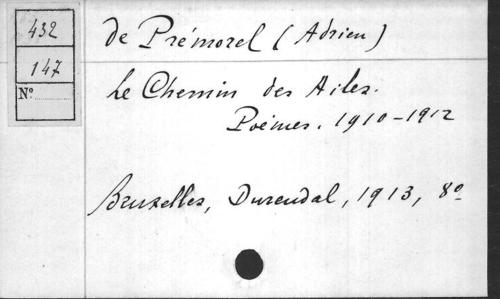 432
147
N°
de Prémorel (Adrien)
Le Chemin des Ailes.
Poèmes. 1910-1912
Bruxelles, Durendal, 1913, 8°